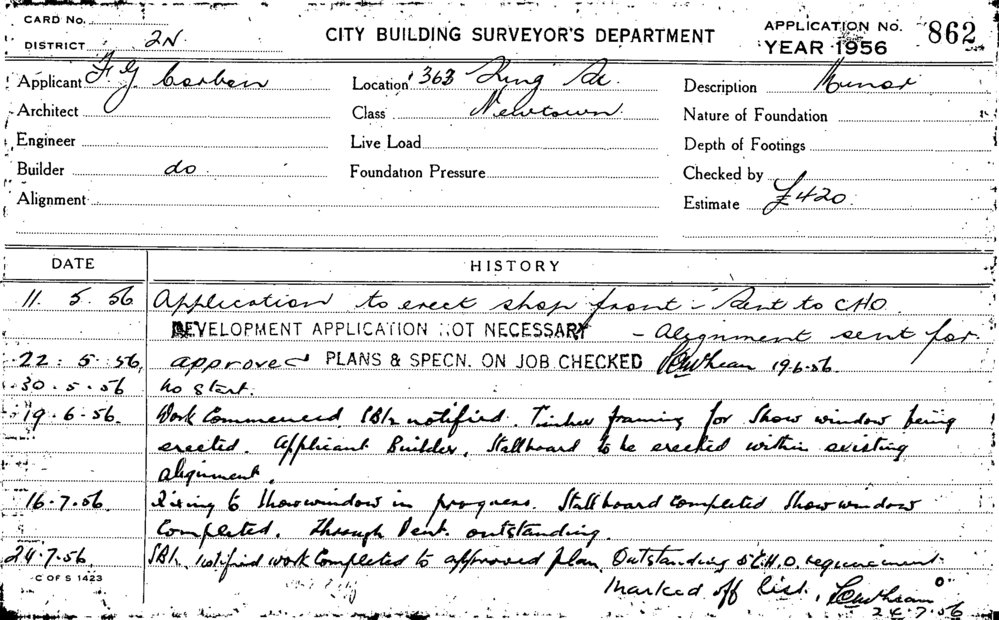 CARD No.
DISTRICT 2N
CITY BUILDING SURVEYOR'S DEPARTMENT
APPLICATION No. 862
YEAR 1956
Applicant F G Corben
Location 363 King St.
Description Minor
Architect
Class Newtown.
Nature of Foundation
Engineer
Live Load
Depth of Footings
Builder do
Foundation Pressure
Checked by
Alignment
Estimate £420
DATE HISTORY
11. 5. 56 Application to erect shop front - Sent to CHO.
DEVELOPMENT APPLICATION NOT NECESSARY - Alignment sent for
22. 5. 56, approved PLANS & SPECN. ON JOB CHECKED 19.6.56.
30.5.56 No start.
19.6.56. Work Commenced. notified. Timber framing for Show window being
erected. Applicant Builder. Stallboard to be erected within existing
alignment.
16.7.56. to Showwindow in progress. Stallboard completed Showwindow
Completed. Through Vent. outstanding.
24.7.56. notified work Completed to approved plan. Outstanding C.H.O. requirement.
Marked off list.
24.7.56
C OF S 1423